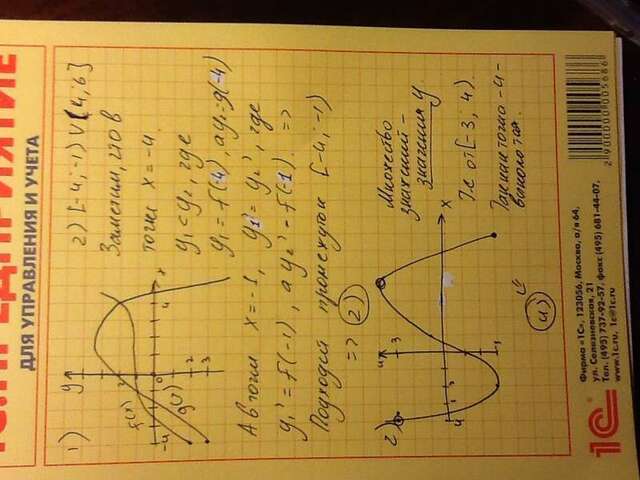 ПРЕДПРИЯТИЕ
ДЛЯ УПРАВЛЕНИЯ И УЧЕТА
1)
y
x
f(x)
g(x)
-4
0
4
2
3
2) [-4;-1) V (4;6]
Заметим, что в
точки x=-4
y₁<y₂, где
y₁=f(-4), а y₂=g(-4)
А в точки x=-1, y₁'=y₂', где
y₁'=f(-1), а y₂'=f(-1). =>
Подходит промежуток [-4;-1)
=> 2)
2)
4
3
x
1
Множество
значений -
значения y
Т.е от [-3; 4)
Так как точка -4-
4)
1С
Фирма "1С", 123056, Москва, а/я 64,
ул. Селезневская, 21
Тел. (495) 737-92-57, факс (495) 681-44-07,
www.1c.ru, 1c@1c.ru
2 900000 005686